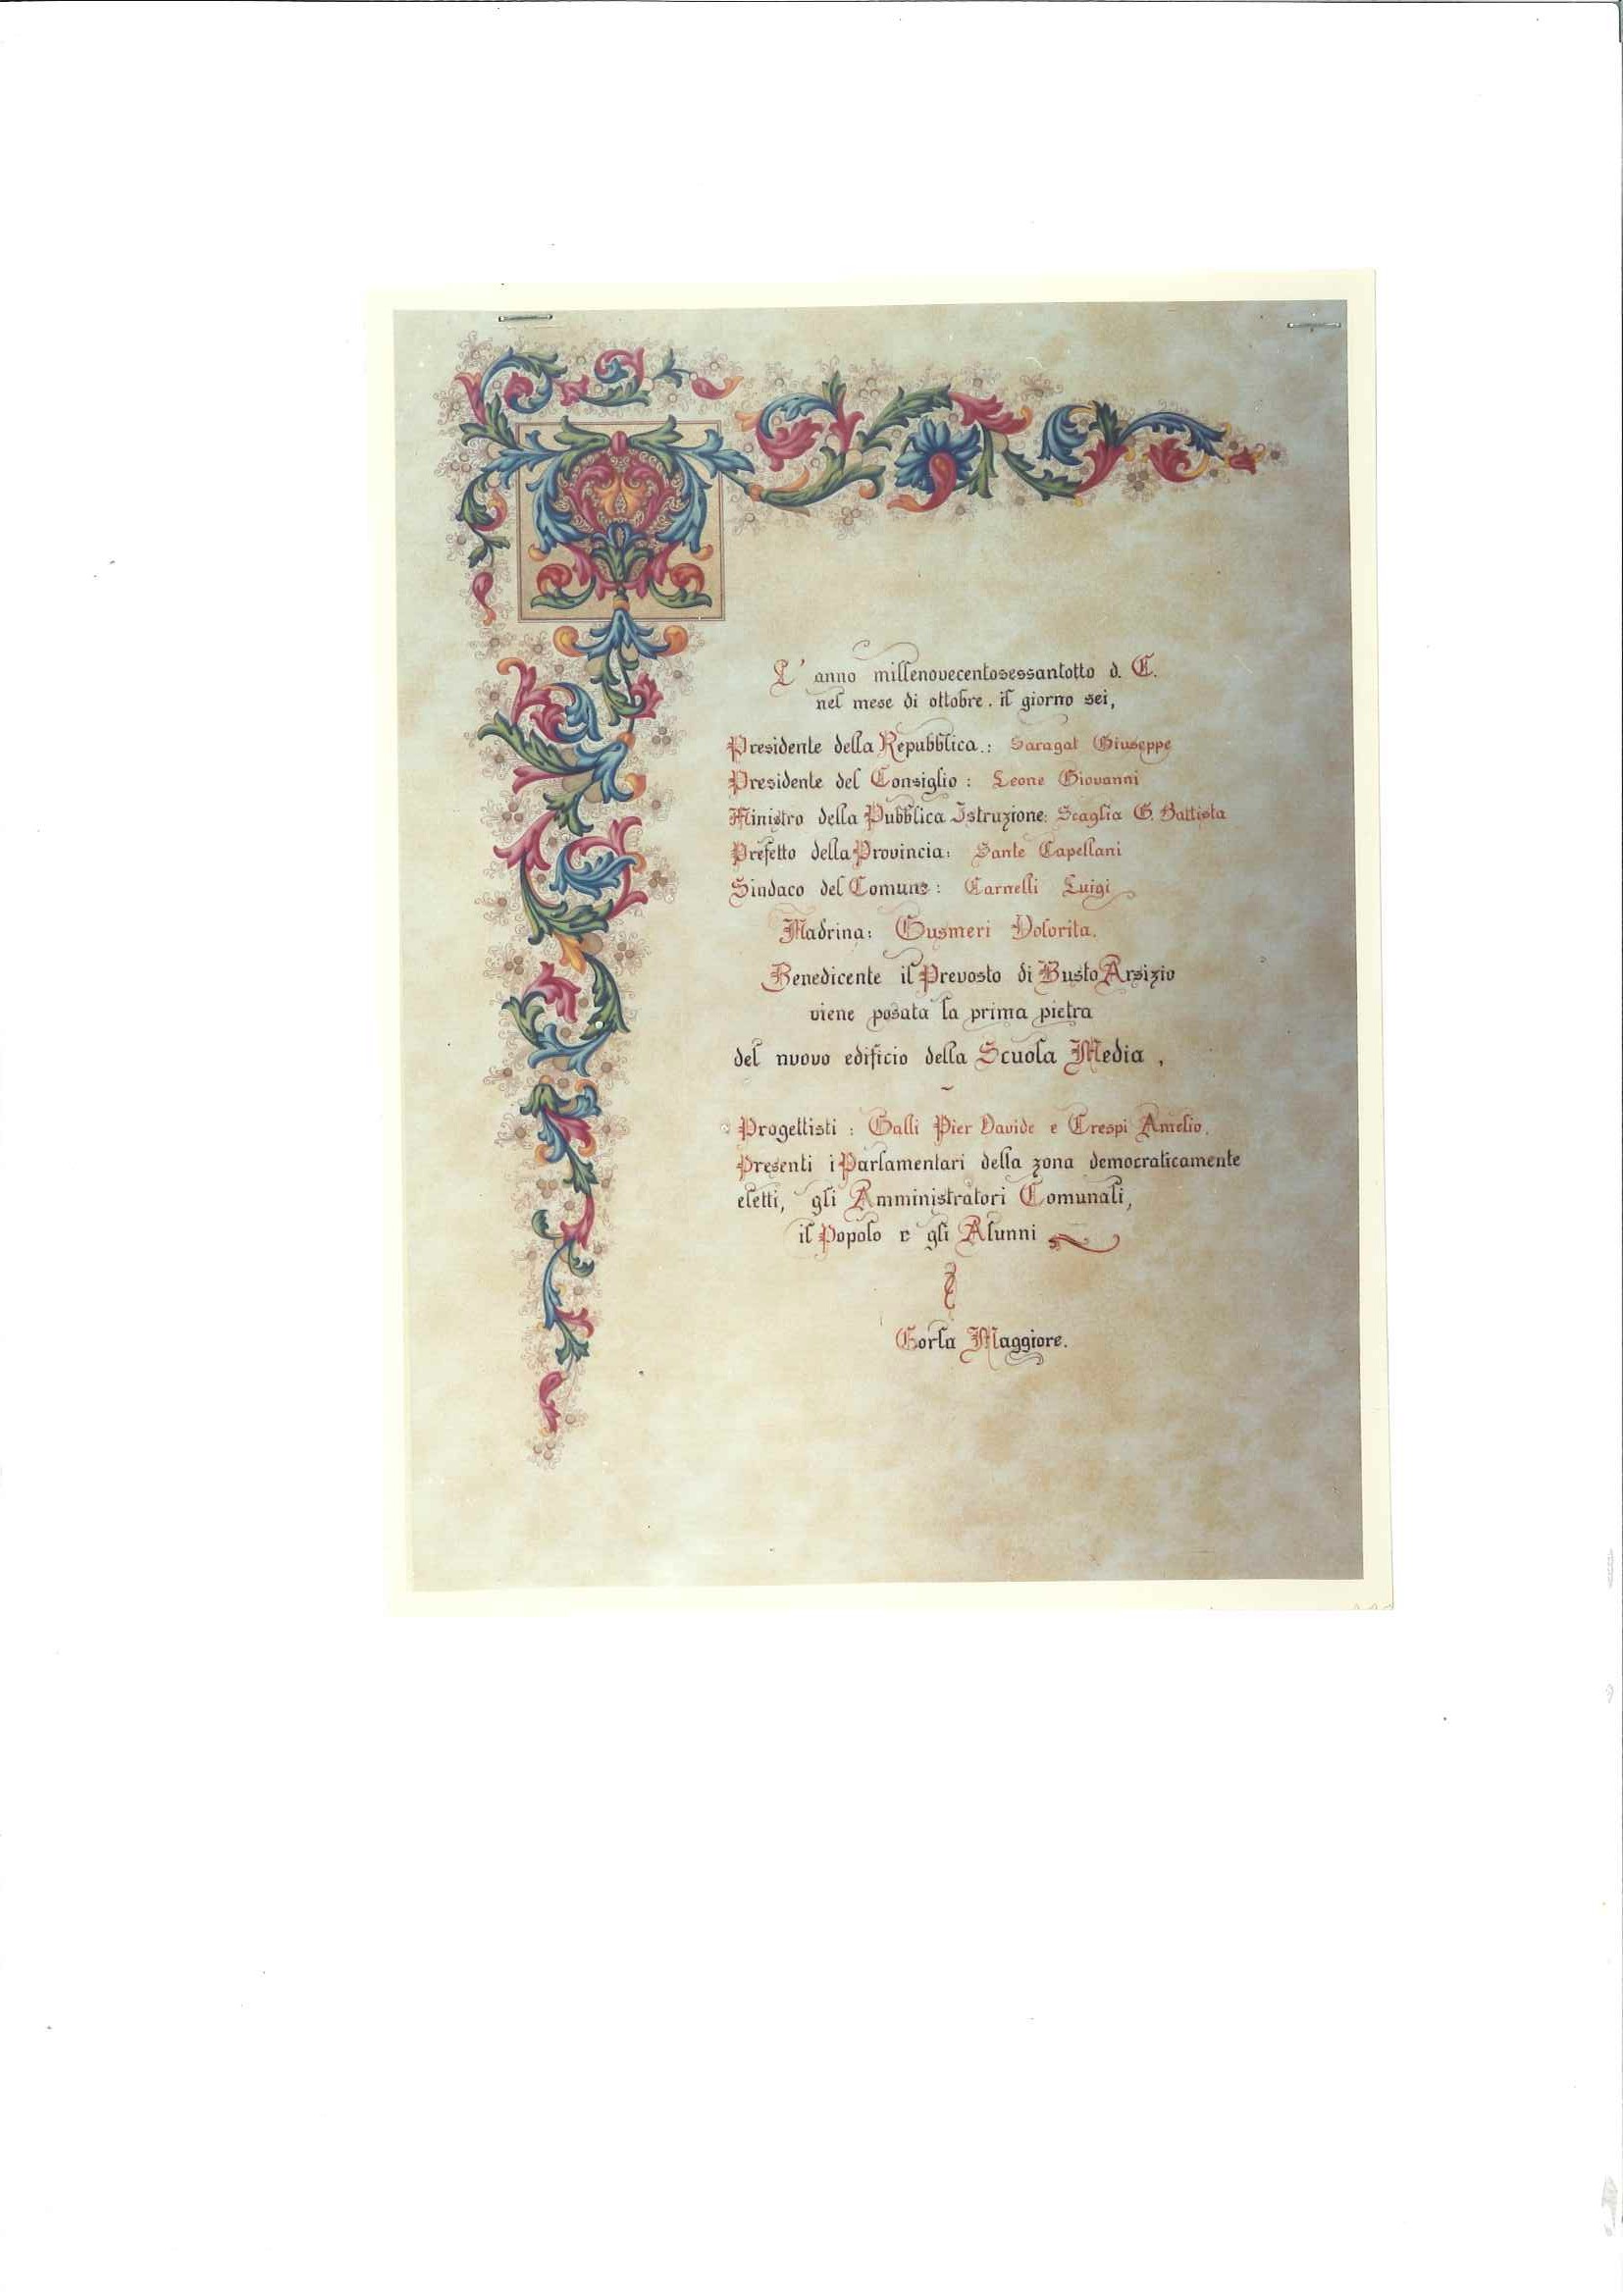 L' anno millenovecentosessantotto d. C.
nel mese di ottobre. il giorno sei,
Presidente della Repubblica.: Saragat Giuseppe
Presidente del Consiglio : Leone Giovanni
Ministro della Pubblica Istruzione: Scaglia G. Battista
Prefetto della Provincia: Sante Capellani
Sindaco del Comune : Carnelli Luigi
Madrina: Gusmeri Dolorita.
Benedicente il Prevosto di Busto Arsizio
viene posata la prima pietra
del nuovo edificio della Scuola Media ,
~
Progettisti : Galli Pier Davide e Crespi Amelio.
Presenti i Parlamentari della zona democraticamente
eletti, gli Amministratori Comunali,
il Popolo e gli Alunni
Gorla Maggiore.